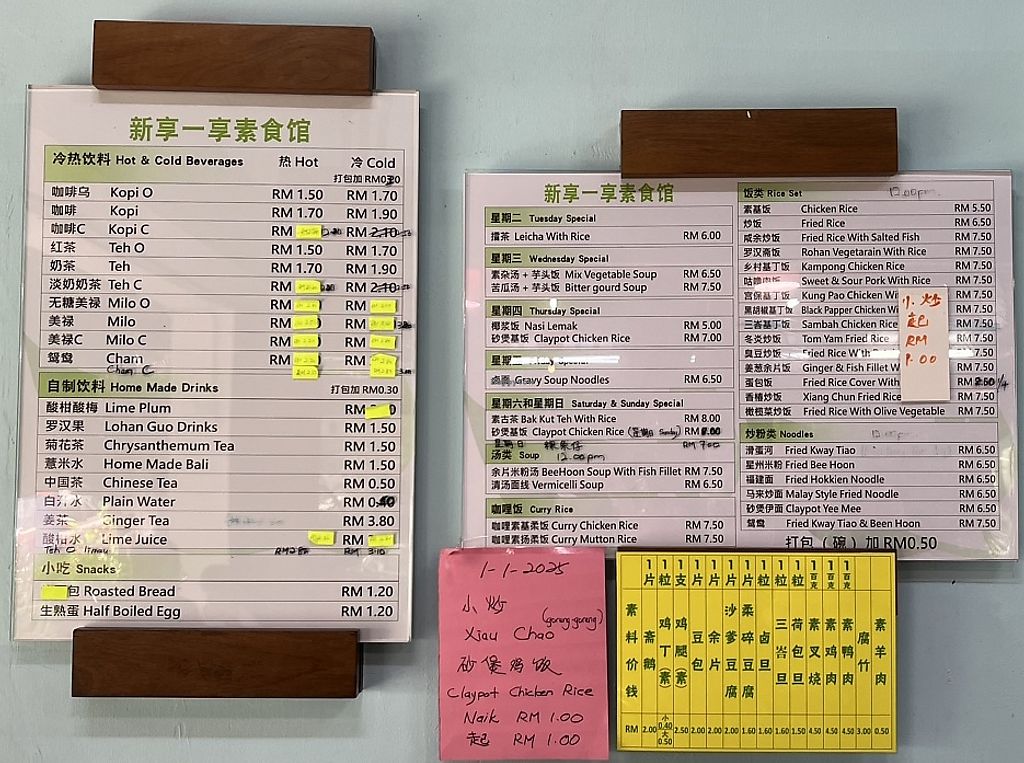 新享一享素食馆
冷热饮料 Hot & Cold Beverages 热 Hot 冷 Cold
打包加 RM0.20
咖啡乌 Kopi O RM 1.50 RM 1.70
咖啡 Kopi RM 1.70 RM 1.90
咖啡C Kopi C RM RM 2.10
红茶 Teh O RM 1.50 RM 1.70
奶茶 Teh RM 1.70 RM 1.90
淡奶奶茶 Teh C RM RM 2.10
无糖美禄 Milo O RM RM
美禄 Milo RM RM
美禄C Milo C RM RM
鸳鸯 Cham RM RM
Cham C
自制饮料 Home Made Drinks 打包加 RM0.30
酸柑酸梅 Lime Plum RM
罗汉果 Lohan Guo Drinks RM 1.50
菊花茶 Chrysanthemum Tea RM 1.50
薏米水 Home Made Bali RM 1.50
中国茶 Chinese Tea RM 0.50
白开水 Plain Water RM 0.40
姜茶 Ginger Tea RM 3.80
酸柑水 Lime Juice RM
Teh O limau RM RM
小吃 Snacks
包 Roasted Bread RM 1.20
生熟蛋 Half Boiled Egg RM 1.20
新享一享素食馆
星期二 Tuesday Special
擂茶 Leicha With Rice RM 6.00
星期三 Wednesday Special
素杂汤 + 芋头饭 Mix Vegetable Soup RM 6.50
苦瓜汤 + 芋头饭 Bitter gourd Soup RM 7.50
星期四 Thursday Special
椰浆饭 Nasi Lemak RM 5.00
砂煲基饭 Claypot Chicken Rice RM 7.00
星期五 Friday Special
卤面 Gravy Soup Noodles RM 6.50
星期六和星期日 Saturday & Sunday Special
素古茶 Bak Kut Teh With Rice RM 8.00
砂煲基饭 Claypot Chicken Rice (星期日 Sunday) RM 8.00
星期日 粿条仔 RM 7.00
汤类 Soup 12.00pm
余片米粉汤 BeeHoon Soup With Fish Fillet RM 7.50
清汤面线 Vermicelli Soup RM 6.50
咖喱饭 Curry Rice
咖喱素基柔饭 Curry Chicken Rice RM 7.50
咖喱素扬柔饭 Curry Mutton Rice RM 7.50
饭类 Rice Set 12.00pm
素基饭 Chicken Rice RM 5.50
炒饭 Fried Rice RM 6.50
咸余炒饭 Fried Rice With Salted Fish RM 7.50
罗汉斋饭 Rohan Vegetarain With Rice RM 7.50
乡村基丁饭 Kampong Chicken Rice RM 7.50
咕噜肉饭 Sweet & Sour Pork With Rice RM 7.50
宫保基丁饭 Kung Pao Chicken Wi RM 7.50
黑胡椒基丁饭 Black Papper Chicken Wi RM 7.50
三峇基丁饭 Sambah Chicken Rice RM 7.50
冬炎炒饭 Tom Yam Fried Rice RM 7.50
臭豆炒饭 Fried Rice With RM 7.50
姜葱余片饭 Ginger & Fish Fillet W RM 7.50
蛋包饭 Fried Rice Cover With RM
香椿炒饭 Xiang Chun Fried Rice RM 7.50
橄榄菜炒饭 Fried Rice With Olive Vegetable RM 7.50
小炒
起
RM
1.00
炒粉类 Noodles
滑蛋河 Fried Kway Tiao RM 6.50
星州米粉 Fried Bee Hoon RM 6.50
福建面 Fried Hokkien Noodle RM 6.50
马来炒面 Malay Style Fried Noodle RM 6.50
砂煲伊面 Claypot Yee Mee RM 6.50
鸳鸯 Fried Kway Tiao & Been Hoon RM 7.50
打包（碗）加 RM0.50
1-1-2025
小炒
Xiau Chao (goreng-goreng)
砂煲鸡饭
Claypot Chicken Rice
Naik RM 1.00
起 RM 1.00
素料价钱 RM
1片 斋鹅 2.00
1粒 鸡丁(素) 小 0.40 大 0.50
1支 鸡腿(素) 2.50
1片 豆包 2.00
1片 余片 2.00
1片 沙爹豆腐 2.00
1片 柔碎豆腐 1.60
1粒 卤旦 1.60
1粒 三峇旦 1.60
1粒 荷包旦 1.50
1百克 素叉烧 4.50
1百克 素鸡肉 4.50
1百克 素鸭肉 4.50
腐竹 3.00
素羊肉 0.50